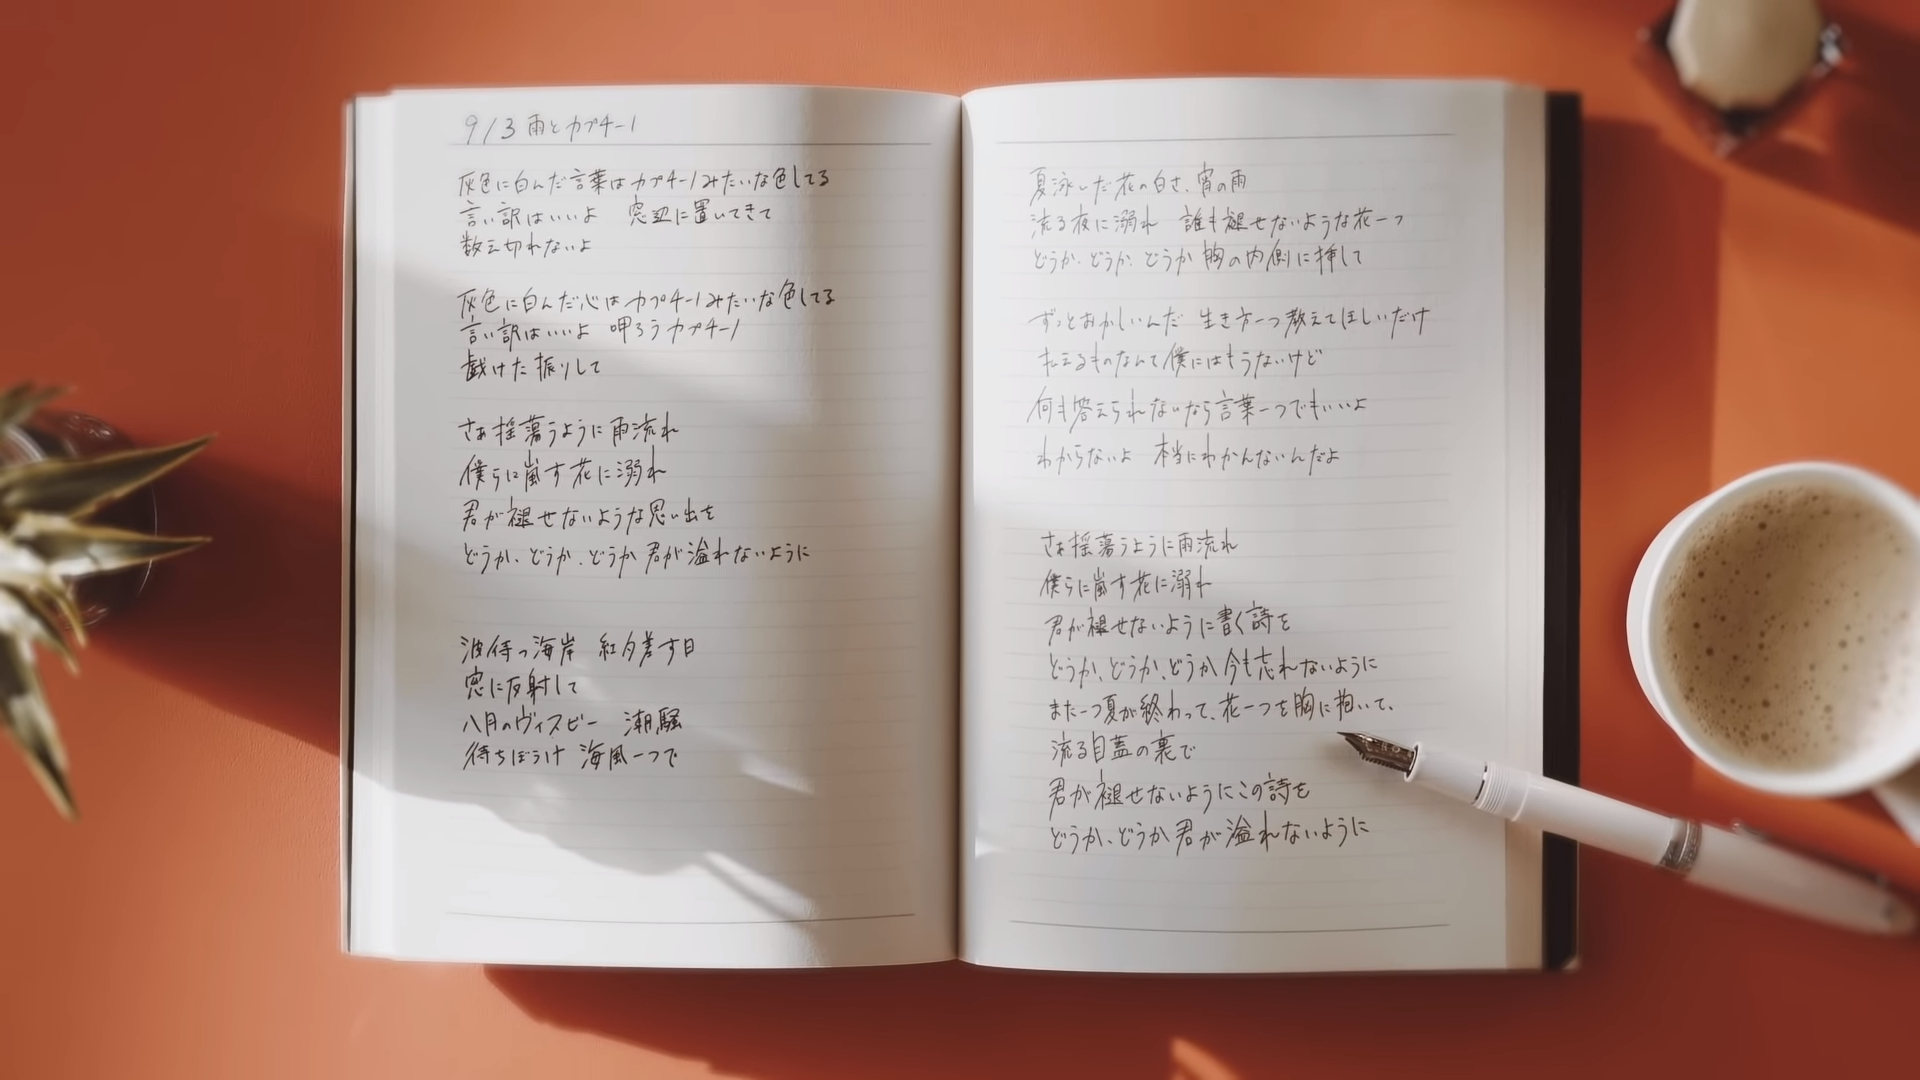 9/3 雨とカプチーノ
灰色に白んだ言葉はカプチーノみたいな色してる
言い訳はいいよ 窓辺に置いてきて
数え切れないよ
灰色に白んだ心はカプチーノみたいな色してる
言い訳はいいよ 呷ろうカプチーノ
戯けた振りして
さぁ揺蕩うように雨流れ
僕らに嵐す花に溺れ
君が褪せないような思い出を
どうか、どうか、どうか君が溢れないように
波待つ海岸 紅夕差す日
窓に反射して
八月のヴィスビー 潮騒
待ちぼうけ 海風一つで
夏泳いだ花の白さ、宵の雨
流る夜に溺れ 誰も褪せないような花一つ
どうか、どうか、どうか胸の内側に挿して
ずっとおかしいんだ 生き方一つ教えてほしいだけ
払えるものなんて僕にはもうないけど
何も答えられないなら言葉一つでもいいよ
わからないよ 本当にわかんないんだよ
さぁ揺蕩うように雨流れ
僕らに嵐す花に溺れ
君が褪せないように書く詩を
どうか、どうか、どうか今も忘れないように
また一つ夏が終わって、花一つを胸に抱いて、
流る目蓋の裏で
君が褪せないようにこの詩を
どうか、どうか君が溢れないように